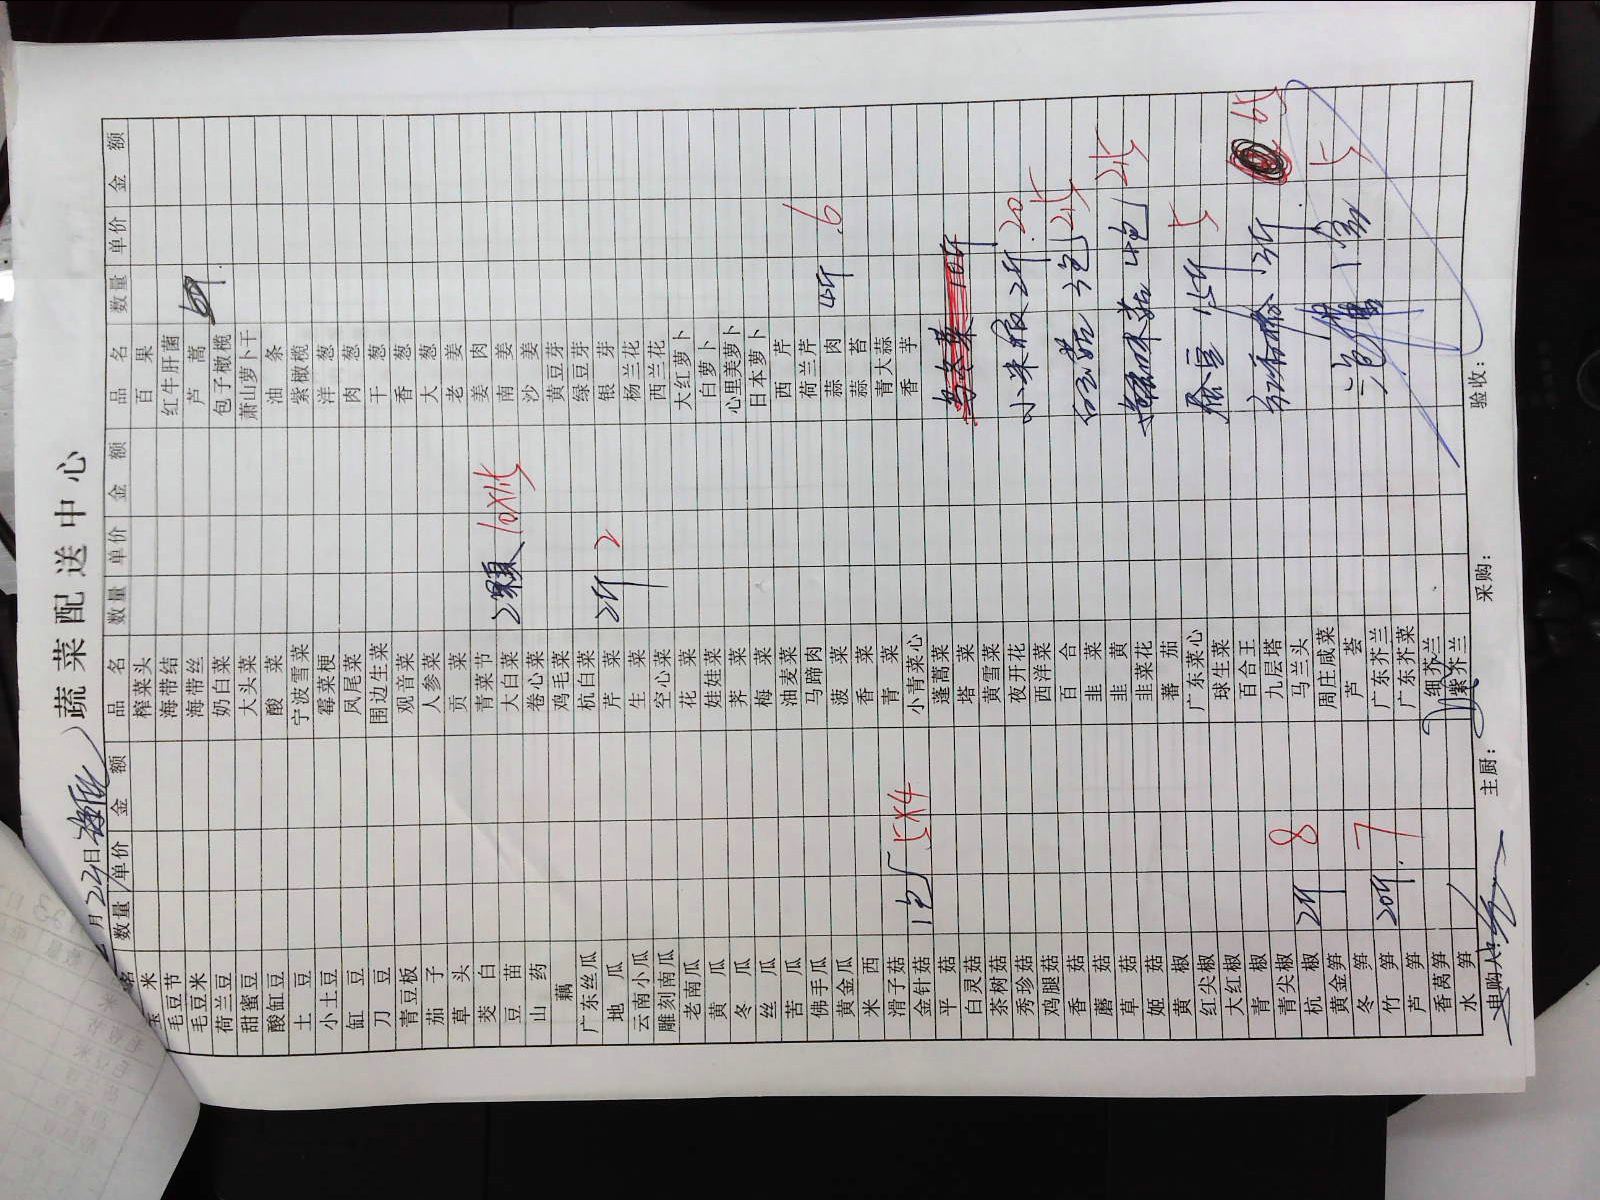 蔬菜配送中心
月23日
品名 数量 单价 金额 品名 数量 单价 金额 品名 数量 单价 金额
玉米 榨菜头 百果
毛豆节 海带结 红牛肝菌
毛豆米 海带丝 芦蒿
荷兰豆 奶白菜 包子橄榄
甜蜜豆 大头菜 萧山萝卜干
酸缸豆 酸菜 油条
土豆 宁波雪菜 紫橄榄
小土豆 霉菜梗 洋葱
缸豆 凤尾菜 肉葱
刀豆 围边生菜 干葱
青豆板 观音菜 香葱
茄子 人参菜 大葱
草头 贡菜 老姜
茭白 青菜节 姜肉
豆苗 大白菜 2颗 10×1.5 南姜
山药 卷心菜 沙姜
藕 鸡毛菜 黄豆芽
广东丝瓜 杭白菜 绿豆芽
地瓜 芹菜 2斤 2 银芽
云南小瓜 生菜 杨兰花
雕刻南瓜 空心菜 西兰花
老南瓜 花菜 大红萝卜
黄瓜 娃娃菜 白萝卜
冬瓜 荠菜 心里美萝卜
丝瓜 梅菜 日本萝卜
苦瓜 油麦菜 西芹
佛手瓜 马蹄肉 荷兰芹
黄金瓜 菠菜 蒜肉 4斤 6
米西 香菜 蒜苔
滑子菇 青菜 青大蒜
金针菇 1包 5×4 小青菜心 香芋
平菇 蓬蒿菜
白灵菇 塔菜 10斤
茶树菇 黄雪菜
秀珍菇 夜开花 小米椒 2斤 20
鸡腿菇 西洋菜
香菇 百合 白玉菇 3包 2.5
蘑菇 韭菜
草菇 韭黄 4包 2.5
姬菇 韭菜花
黄椒 蕃茄
红尖椒 广东菜心 蚕豆 15斤 5
大红椒 球生菜
青椒 百合王 2斤 6.5
青尖椒 九层塔
杭椒 2斤 8 马兰头
黄金笋 周庄咸菜 1 5
冬笋 芦荟
竹笋 20斤 7 广东芥兰
芦笋 广东芥菜
香莴笋 细芥兰
水笋 紫芥兰
申购人: 主厨: 采购: 验收: